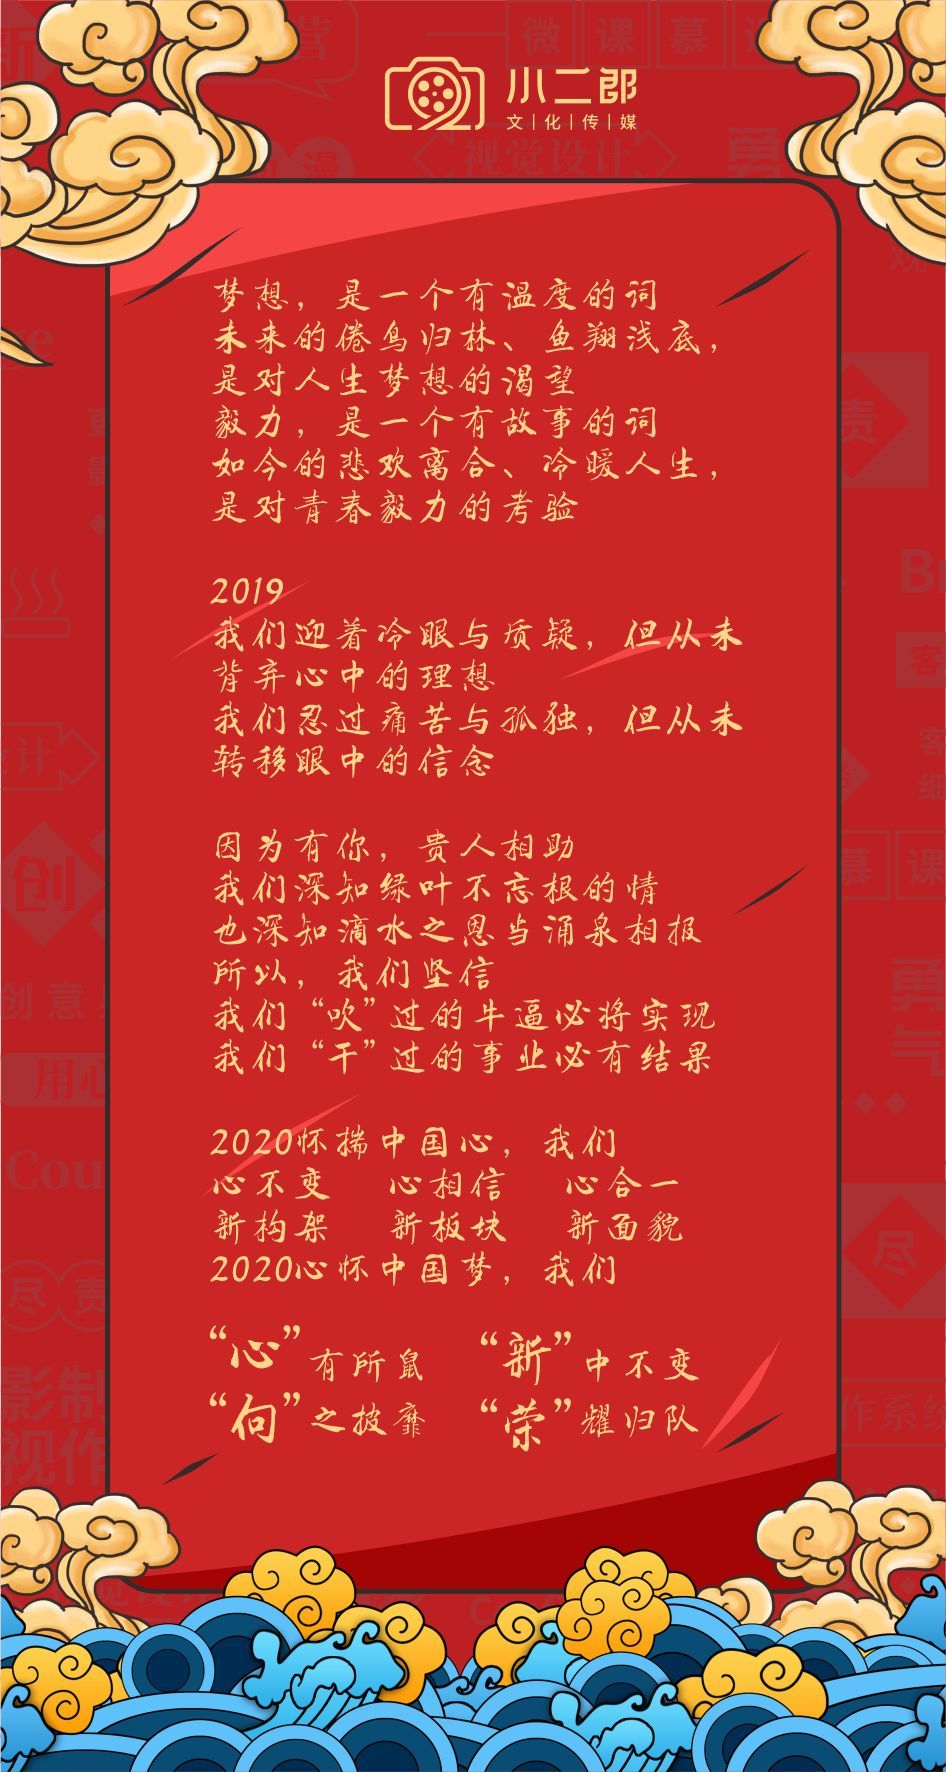 小二郎
文|化|传|媒
梦想，是一个有温度的词
未来的倦鸟归林、鱼翔浅底，
是对人生梦想的渴望
毅力，是一个有故事的词
如今的悲欢离合、冷暖人生，
是对青春毅力的考验
2019
我们迎着冷眼与质疑，但从未
背弃心中的理想
我们忍过痛苦与孤独，但从未
转移眼中的信念
因为有你，贵人相助
我们深知绿叶不忘根的情
也深知滴水之恩当涌泉相报
所以，我们坚信
我们“吹”过的牛逼必将实现
我们“干”过的事业必有结果
2020怀揣中国心，我们
心不变 心相信 心合一
新构架 新板块 新面貌
2020心怀中国梦，我们
“心”有所鼠 “新”中不变
“向”之披靡 “荣”耀归队
营
微课慕课
视觉设计
漫
勇
观
责
计
创
创意
用心
Cou
尽责
影制
视作
慕课
勇气
尽
作系统
客
细